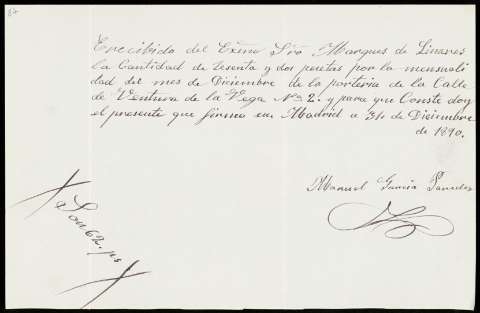 87
E recibido del Exmo Sro Marques de Linares
la Cantidad de Sesenta y dos pesetas por la mensuali
dad del mes de Diciembre de la porteria de la Calle
de Ventura de la Vega No 2. y para que Conste doy
el presente que firmo en Madrid a 31 de Diciembre
de 1890.
Manuel Garcia Paredes
Son 62. ps